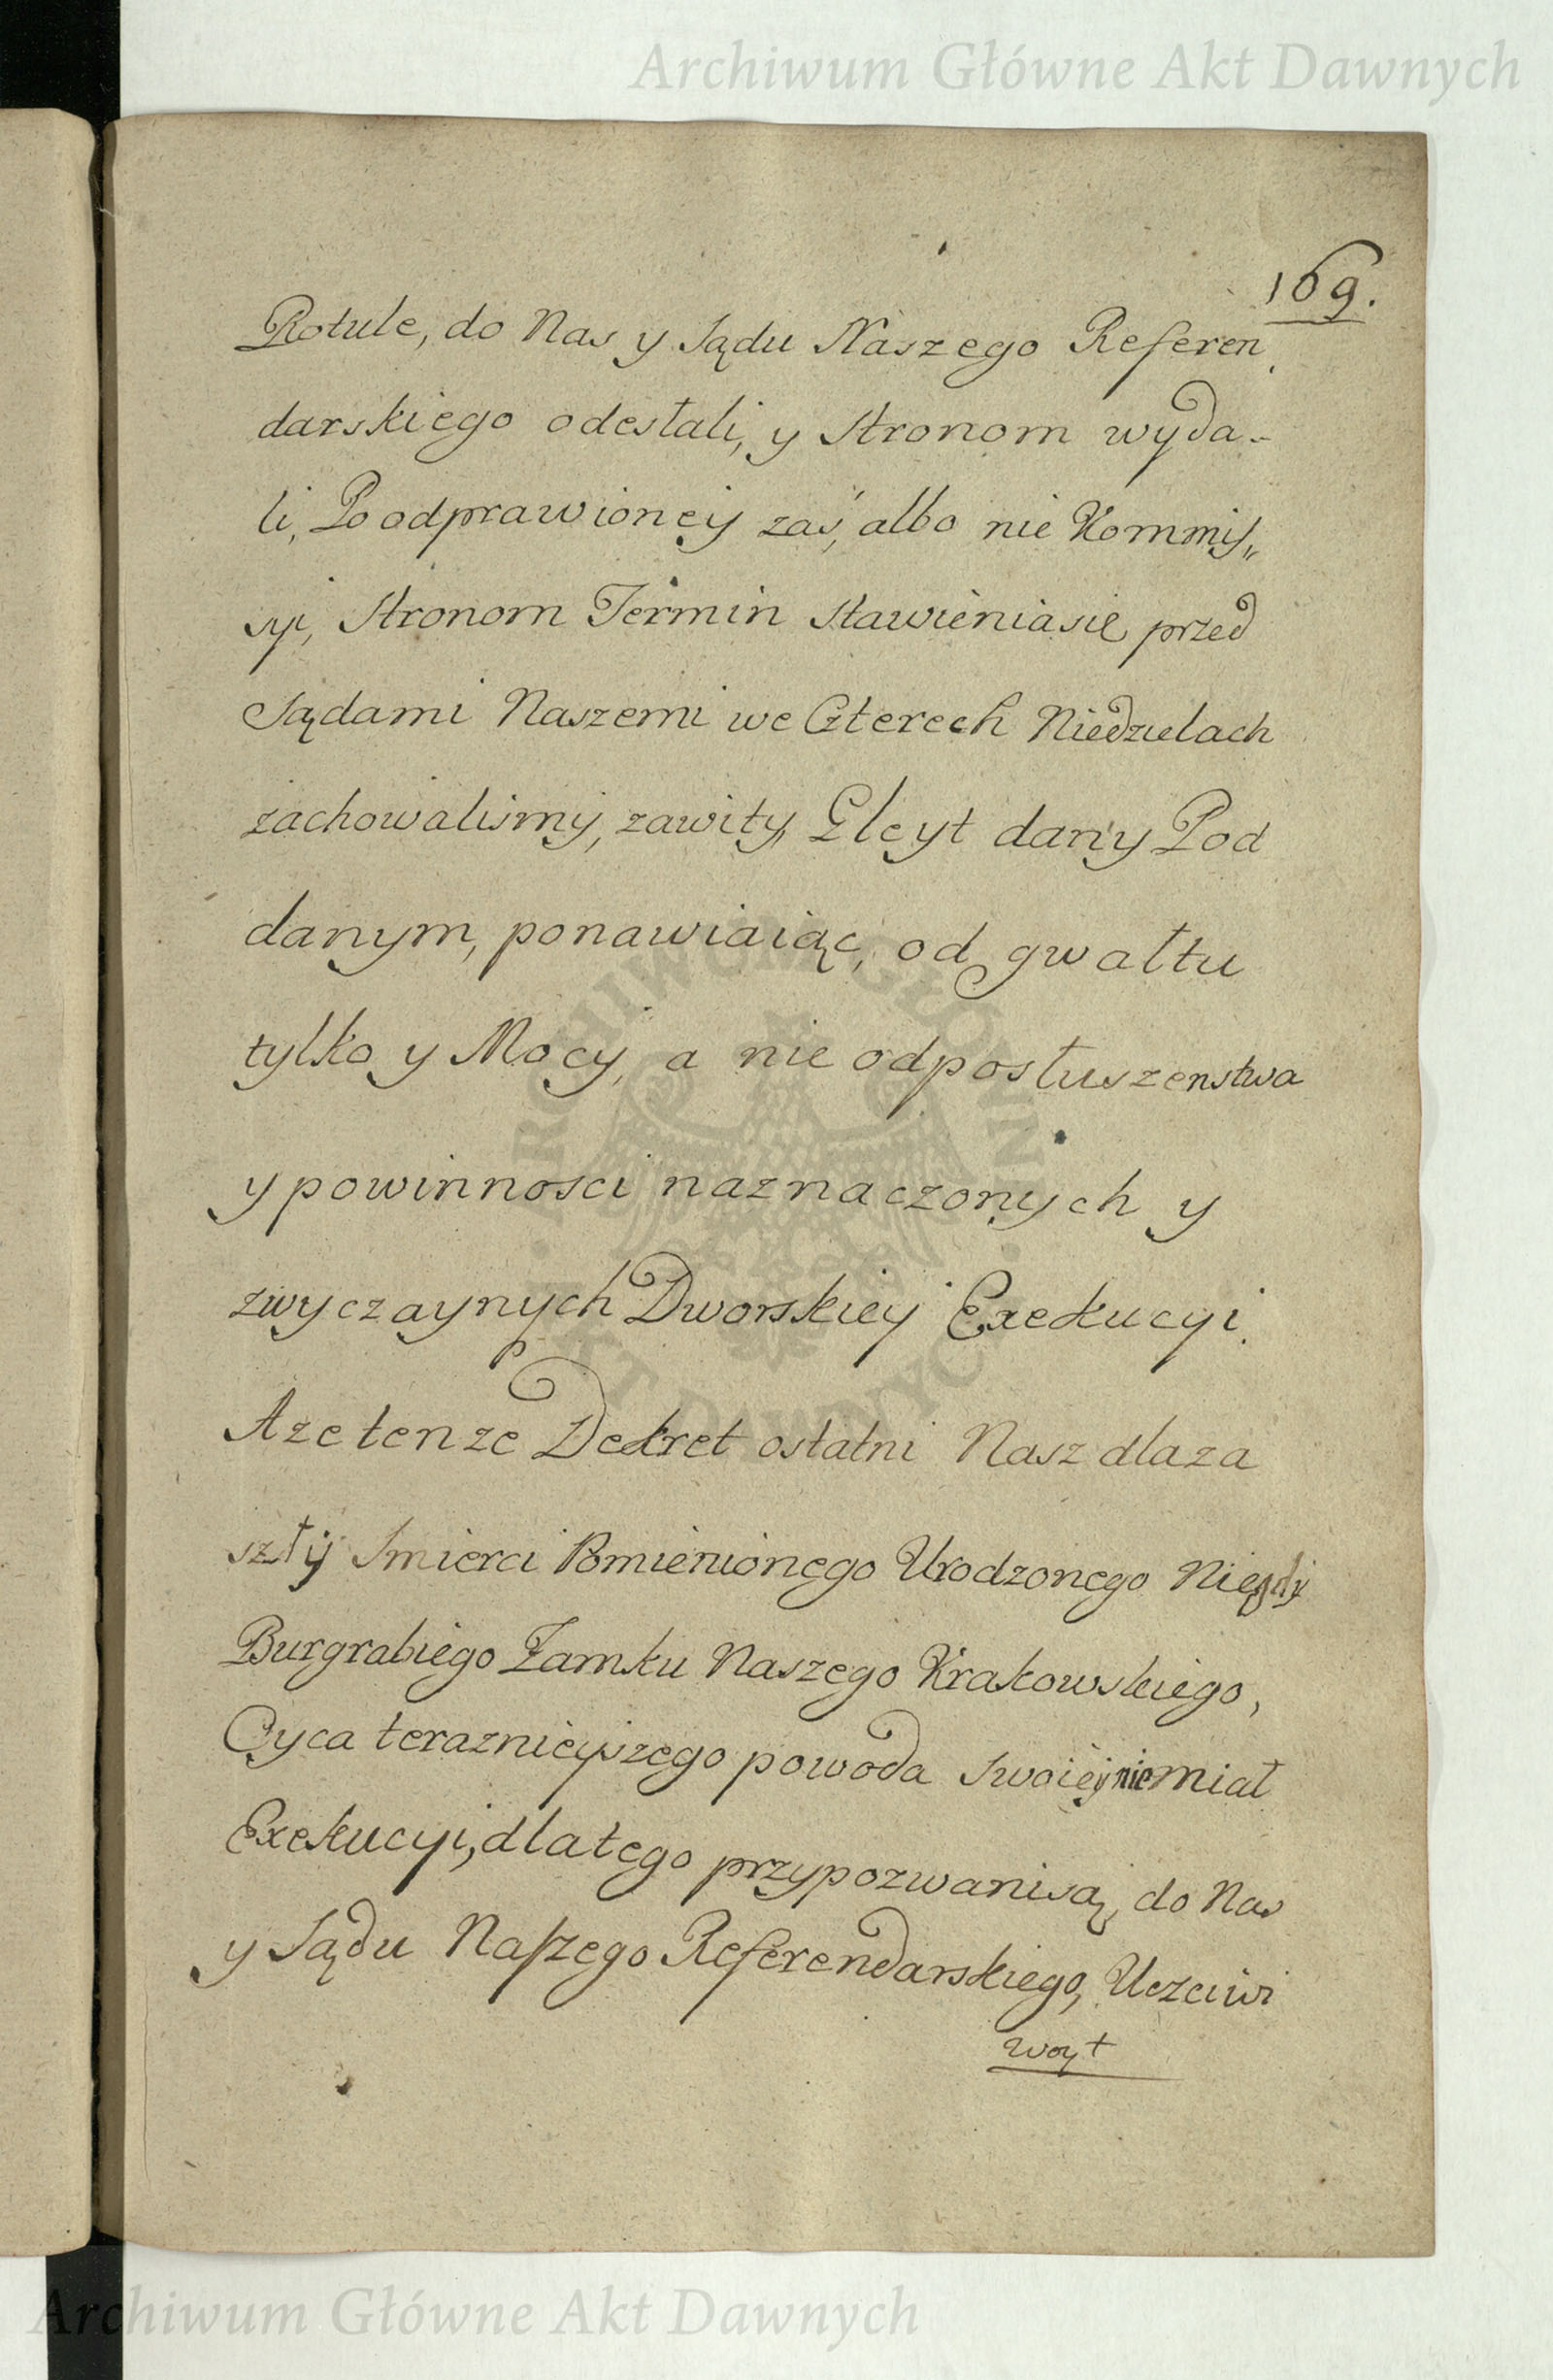 Archiwum Główne Akt Dawnych
169.
Rotule, do Nas y Sądu Naszego Referen
darskiego odesłali, y Stronom wyda-
li, Po odprawioney zaś, albo nie Kommis„
syi, Stronom Termin stawienia się przed
Sądami Naszemi we Czterech Niedzielach
zachowalismy, zawity, Gleyt dany Pod
danym, ponawiaiąc, od gwałtu
tylko y Mocy, a nie od posłuszenstwa
y powinnosci naznaczonych y
zwyczaynych Dworskiey Exekucyi.
A że tenże Dekret ostatni Nasz dla za
szły Smierci Pomienionego Urodzonego Niegdy
Burgrabiego Zamku Naszego Krakowskiego,
Oyca teraznieyszego powoda swoiey nie miał
Exekucyi, dla tego przypozwani są, do Nas
y Sądu Naszego Referendarskiego, Uczciwi
Woyt
ARCHIWUM GŁÓWNE AKT DAWNYCH
Archiwum Główne Akt Dawnych